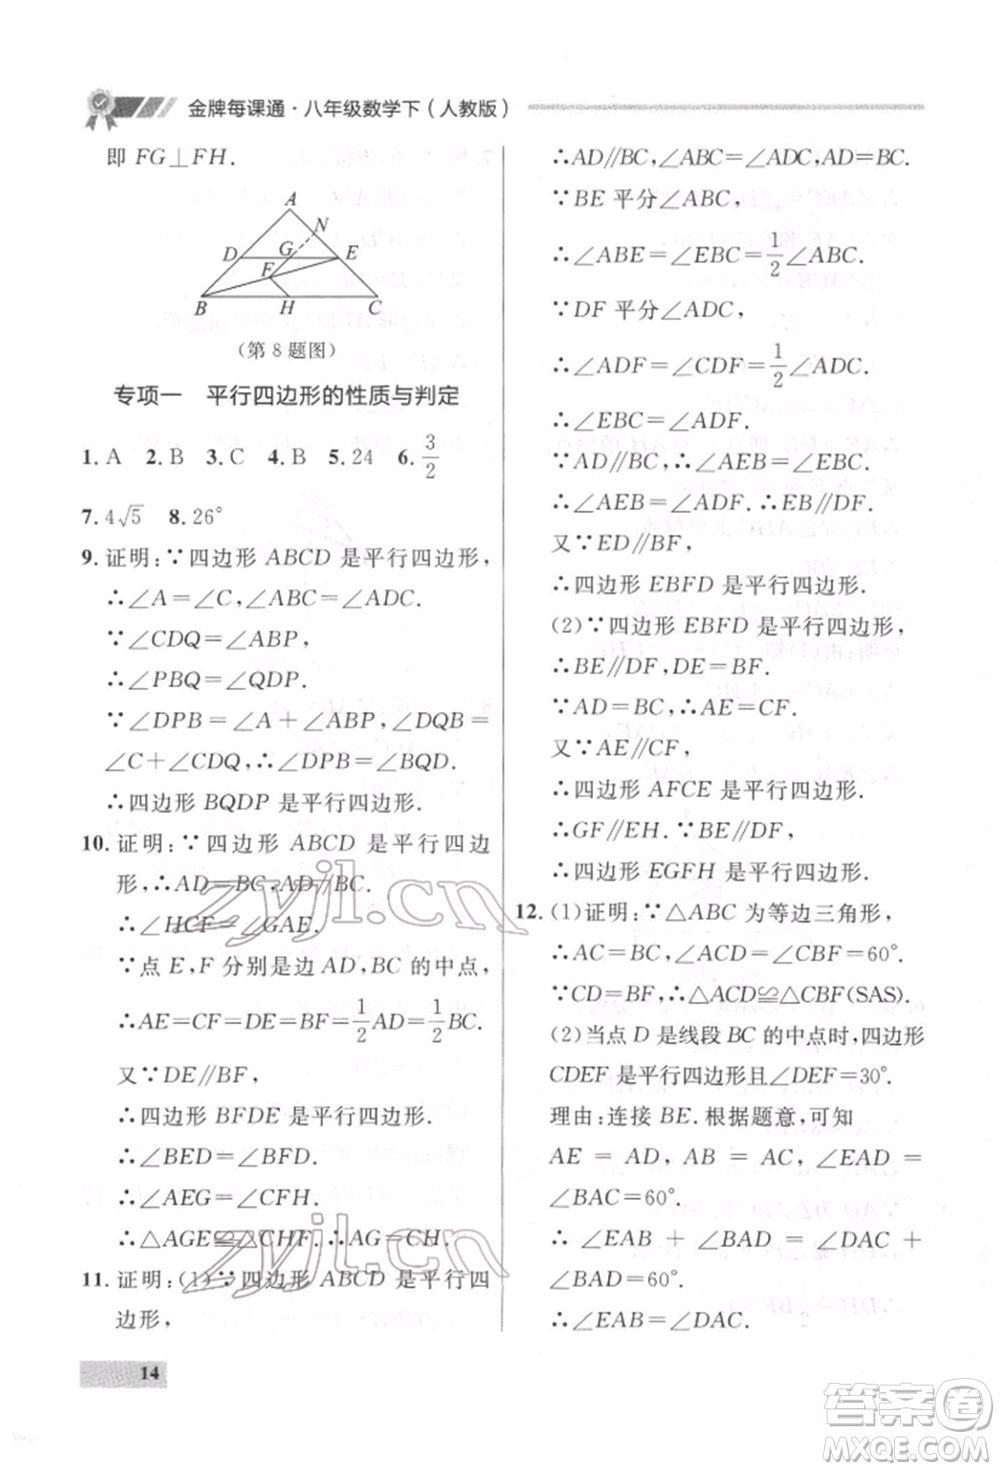 金牌每课通·八年级数学下（人教版）
即 FG⊥FH.
A
N
D
G
E
F
B
H
C
（第 8 题图）
专项一 平行四边形的性质与判定
1. A 2. B 3. C 4. B 5. 24 6. 3/2
7. 4√5 8. 26°
9. 证明：∵四边形 ABCD 是平行四边形，
∴∠A＝∠C，∠ABC＝∠ADC.
∵∠CDQ＝∠ABP，
∴∠PBQ＝∠QDP.
∵∠DPB＝∠A＋∠ABP，∠DQB＝
∠C＋∠CDQ，∴∠DPB＝∠BQD.
∴四边形 BQDP 是平行四边形.
10. 证明：∵四边形 ABCD 是平行四边
形，∴AD＝BC，AD∥BC.
∴∠HCF＝∠GAE.
∵点 E，F 分别是边 AD，BC 的中点，
∴AE＝CF＝DE＝BF＝1/2AD＝1/2BC.
又∵DE∥BF，
∴四边形 BFDE 是平行四边形.
∴∠BED＝∠BFD.
∴∠AEG＝∠CFH.
∴△AGE≌△CHF. ∴AG＝CH.
11. 证明：(1)∵四边形 ABCD 是平行四
边形，
∴AD∥BC，∠ABC＝∠ADC，AD＝BC.
∵BE 平分∠ABC，
∴∠ABE＝∠EBC＝1/2∠ABC.
∵DF 平分∠ADC，
∴∠ADF＝∠CDF＝1/2∠ADC.
∴∠EBC＝∠ADF.
∵AD∥BC，∴∠AEB＝∠EBC.
∴∠AEB＝∠ADF. ∴EB∥DF.
又∵ED∥BF，
∴四边形 EBFD 是平行四边形.
(2)∵四边形 EBFD 是平行四边形，
∴BE∥DF，DE＝BF.
∴AD－DE＝BC－BF. ∴AE＝CF.
又∵AE∥CF，
∴四边形 AFCE 是平行四边形.
∴GF∥EH. ∵BE∥DF，
∴四边形 EGFH 是平行四边形.
12. (1)证明：∵△ABC 为等边三角形，
∴AC＝BC，∠ACD＝∠CBF＝60°.
∵CD＝BF，∴△ACD≌△CBF(SAS).
(2)当点 D 是线段 BC 的中点时，四边形
CDEF 是平行四边形且∠DEF＝30°.
理由：连接 BE. 根据题意，可知
AE ＝ AD，AB ＝ AC，∠EAD ＝
∠BAC＝60°.
∴∠EAB ＋ ∠BAD ＝ ∠DAC ＋
∠BAD＝60°.
∴∠EAB＝∠DAC.
14
zyjl.cn
zyjl.cn
答案圈
MXQE.COM